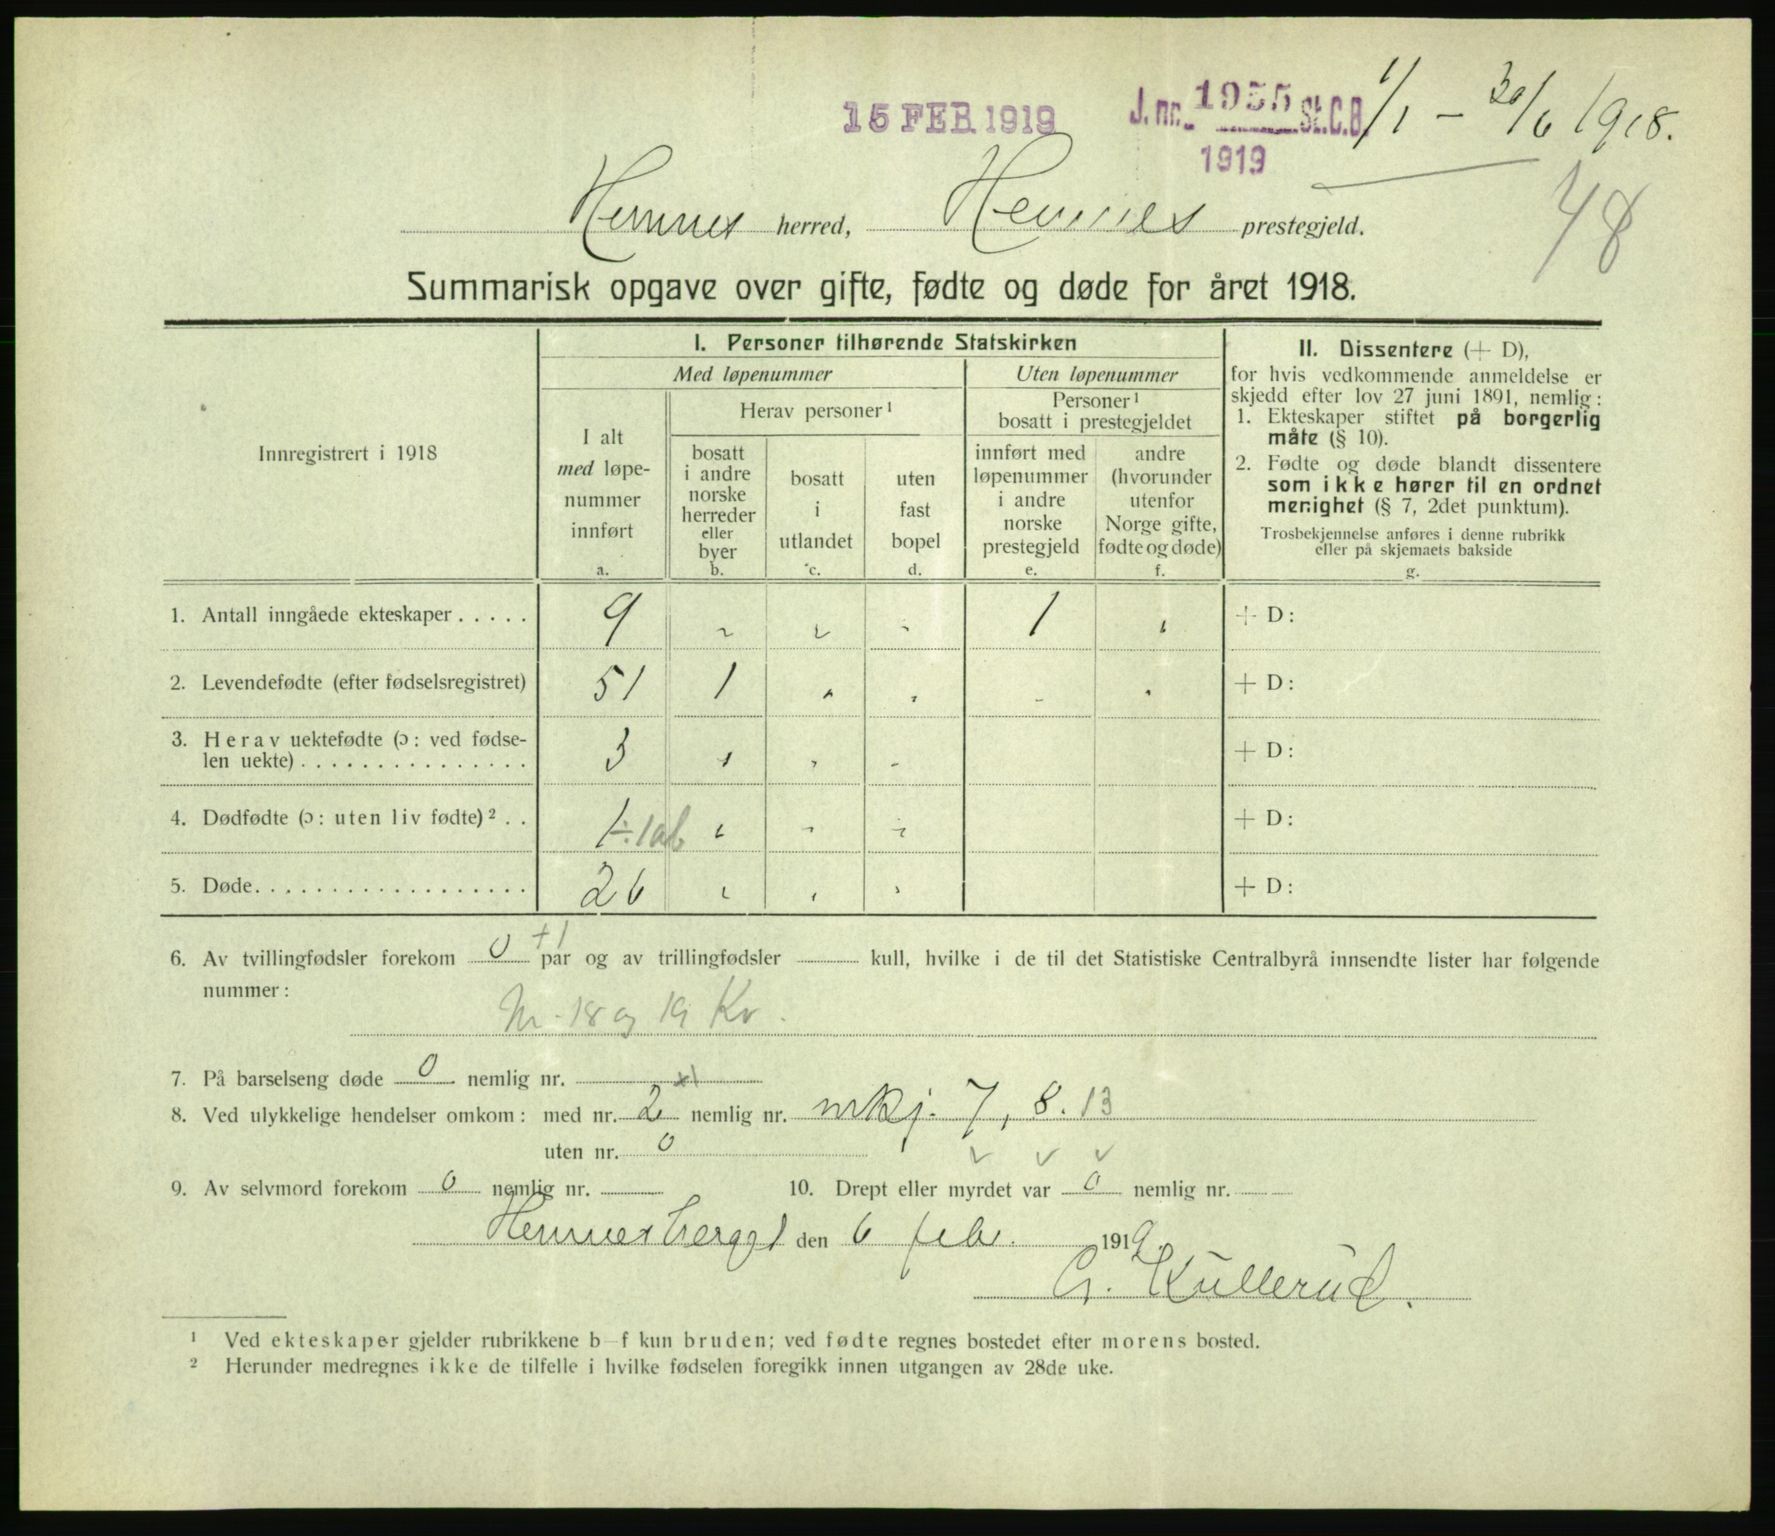 15 FEB 1919 J.nr. 1955 St.C.B. 1/1 – 30/6 1918.
1919
48
Hemnes herred, Hemnes prestegjeld.
Summarisk opgave over gifte, fødte og døde for året 1918.
Innregistrert i 1918
I. Personer tilhørende Statskirken
Med løpenummer
Uten løpenummer
I alt
med løpe-
nummer
innført
a.
Herav personer¹
bosatt
i andre
norske
herreder
eller
byer
b.
bosatt
i
utlandet
c.
uten
fast
bopel
d.
Personer¹
bosatt i prestegjeldet
innført med
løpenummer
i andre
norske
prestegjeld
e.
andre
(hvorunder
utenfor
Norge gifte,
fødte og døde)
f.
II. Dissentere (+ D),
for hvis vedkommende anmeldelse er
skjedd efter lov 27 juni 1891, nemlig:
1. Ekteskaper stiftet på borgerlig
måte (§ 10).
2. Fødte og døde blandt dissentere
som ikke hører til en ordnet
menighet (§ 7, 2det punktum).
Trosbekjennelse anføres i denne rubrikk
eller på skjemaets bakside
g.
1. Antall inngåede ekteskaper ..... 9 " " " 1 " + D:
2. Levendefødte (efter fødselsregistret) 51 1 " " " " + D:
3. Herav uektefødte (ɔ: ved fødse-
len uekte) ............... 3 " " " + D:
4. Dødfødte (ɔ: uten liv fødte)² .. 1 ÷ 1 ab " " " + D:
5. Døde.................. 26 " " " + D:
6. Av tvillingfødsler forekom 0 +1 par og av trillingfødsler kull, hvilke i de til det Statistiske Centralbyrå innsendte lister har følgende
nummer:
Nr. 18 og 19 Kv.
7. På barselseng døde 0 nemlig nr.
8. Ved ulykkelige hendelser omkom: med nr. 2 +1 nemlig nr. mkj. 7, 8. 13
uten nr. 0
9. Av selvmord forekom 0 nemlig nr. 10. Drept eller myrdet var 0 nemlig nr.
Hemnesberget den 6 febr. 1919.
G. Kullerud.
¹ Ved ekteskaper gjelder rubrikkene b–f kun bruden; ved fødte regnes bostedet efter morens bosted.
² Herunder medregnes ikke de tilfelle i hvilke fødselen foregikk innen utgangen av 28de uke.